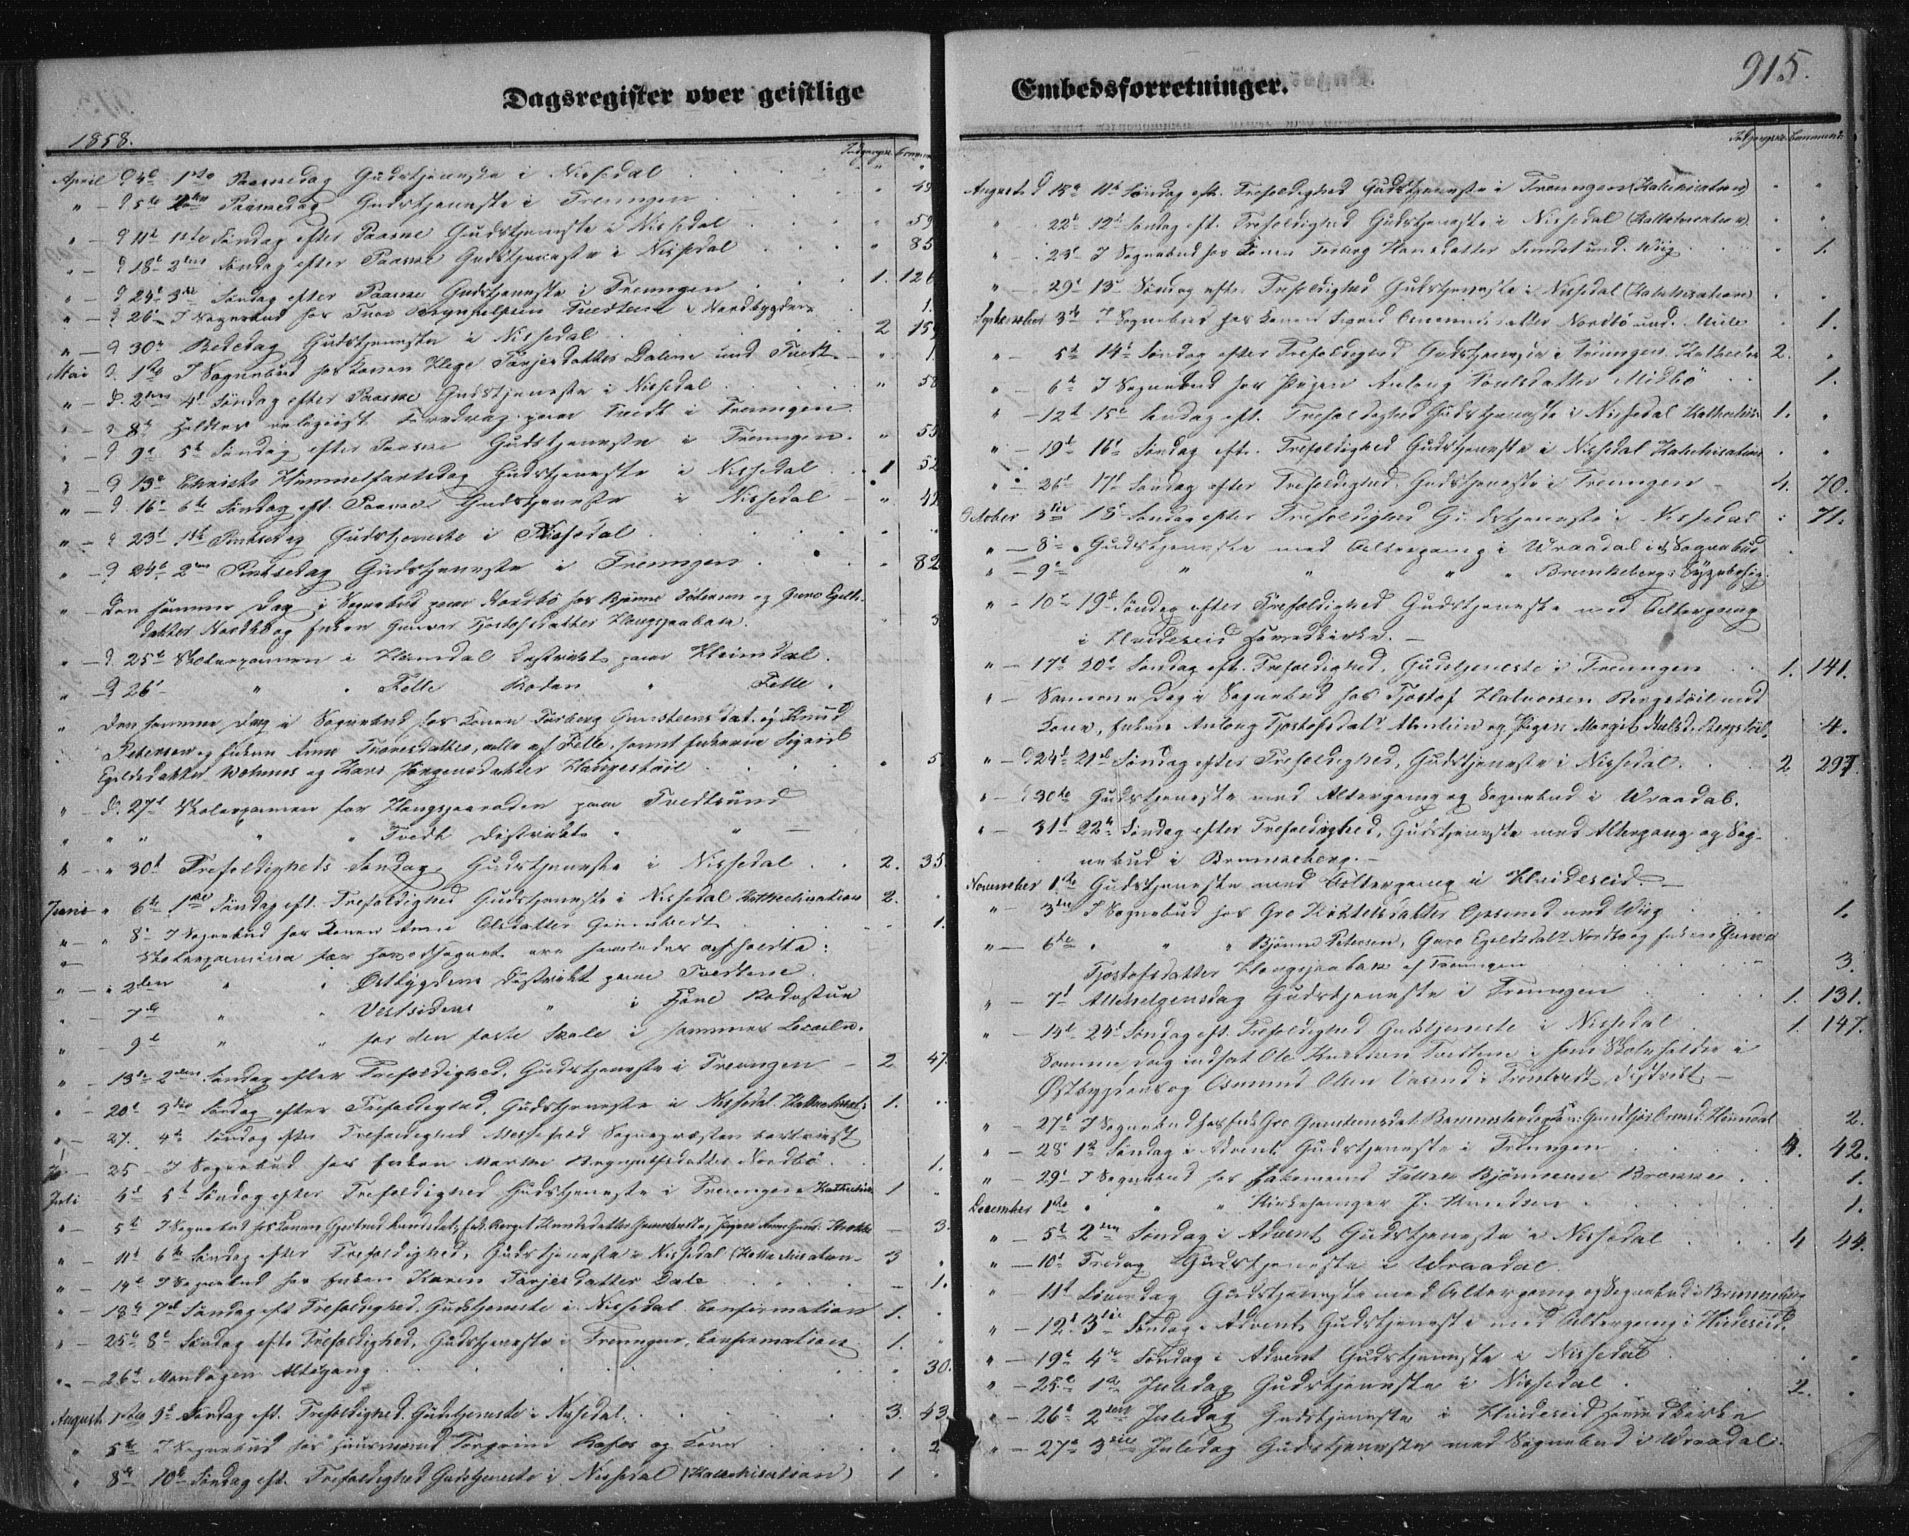 Dagsregister over geistlige
1858.
April d 4de 1ste Paaskedag Gudstjeneste i Nissedal
" - d 5te 2den Paaskedag Gudstjeneste i Treungen 49
" - d 11te 1ste Søndag efter Paaske Gudstjeneste i Nissedal 59
" - d 18de 2den Søndag efter Paaske Gudstjeneste i Nissedal 85
" - d 3die Søndag efter Paaske Gudstjeneste i Treungen 1. 126
" - d 26 I Sognebud hos 1.
" - d 30te Bededag Gudstjeneste i Nissedal 2
Mai d. 1ste I Sognebud hos Konen Hege Tarjersdatter Dalene und Tvedt
" - d. 2den 4de Søndag efter Paaske Gudstjeneste i Nissedal 58
" - d 8de Holdtes religiøst Foredrag paa Tvedt i Treungen
" - d 9de 5te Søndag efter Paaske Gudstjeneste i Treungen. 55
" - d 13de Christi Himmelfartsdag Gudstjeneste i Nissedal 1 52
" - d. 16de 6te Søndag eft. Paaske Gudstjeneste i Nissedal 42
" - d 23de 1ste Pintsedag Gudstjeneste i Nissedal
" - d 24de 2den Pintsedag Gudstjeneste i Treungen 82
" - den samme Dag i Sognebud paa Nordbø hos Bjønne Petersen og Guro Egilds-
datter Nordbø og Enken Gunvor Tjostofsdatter Haugsjaabak. 3
" - d. 25de Skoleexamen i Heimdal Distrikt paa Heimdal.
" - d 26 " " Felle Roden " Felle.
" den samme Dag i Sognebud hos Konen Torberg Gunsteensdat. og Knud
Petersen og Enken Anne Tvoresdatter, alle af Felle, samt Enkerne Sigrid
Egilsdatter og Kari Jørgensdatter Haugestøil 5
" d. 27de Skoleexamen for Haugsjaaroden paa Tvedtsund
" " " Tvedt Distrikt " "
" " 30te Trefoldigheds Søndag, Gudstjeneste i Nissedal 2. 35.
Juni " 6te 1ste Søndag eft. Trefoldighed Gudstjeneste i Nissedal Kathechisation 2.
" - " 8de I Sognebud hos Konen Anne Olsdatter 1.
" Skoleexamina for Hovedsognet ere saaledes afholdte:
" - " 2den " i Østbygdens Distrikt paa Tvedtene.
" - 7de " Vestsidens " i
" - 9de " " for den faste Skole i samme Locale.
" - 13de 2den Søndag efter Trefoldighed, Gudstjeneste i Treungen 2 47.
" - 20de 3die Søndag efter Trefoldighed, Gudstjeneste i Nissedal. 1.
" - 27. 4de Søndag efter Trefoldighed Messefald Sognepræsten bortreist
- 25 - I Sognebud hos Enken Nordbø. 1.
Juli 4de 5te Søndag efter Trefoldighed Gudstjeneste i Treungen 1
" - 5te I Sognebud hos Konen 3.
" - 11te 6te Søndag efter Trefoldighed, Gudstjeneste i Nissedal (Kathechisation 3
" - 14de I Sognebud hos Enken Karen Tarjersdatter Dale 1.
" - 18de 7de Søndag eft Trefoldighed, Gudstjeneste i Nissedal Confirmation 1.
" - 25de 8de Søndag efter Trefoldighed, Gudstjeneste i Treungen, Confirmation 1.
" - 26de Mandagen Altergang 30.
August 1ste 9de Søndag eft. Trefoldighed Gudstjeneste i Nissedal. 3. 43.
" 5te I Sognebud hos Huusmand Torgrim og Kone 2
" 8de 10de Søndag eft. Trefoldighed Gudstjeneste i Nissedal (Katechisation) 1
Embedsforretninger. 915.
August d 15de 11te Søndag eft. Trefoldighed Gudstjeneste i Treungen (Katechisation)
" 22de 12te Søndag eft. Trefoldighed Gudstjeneste i Nissedal
" 23de I Sognebud hos Konen Torberg Hansdatter und. Wiig 1.
" - 29de 13de Søndag efter Trefoldighed Gudstjeneste i Nissedal (Katechisation)
September 3die I Sognebud hos Konen Nordbø und. Mule 1.
" - 5te 14de Søndag efter Trefoldighed Gudstjeneste i Treungen. 2.
" - 6te I Sognebud hos Pigen Anlaug Midbø 1.
" - 12te 15de Søndag eft. Trefoldighed Gudstjeneste i Nissedal 1.
" - 19de 16de Søndag eft. Trefoldighed Gudstjeneste i Nissedal Katechisation
" - 26de 17de Søndag efter Trefoldighed, Gudstjeneste i Treungen 4. 70.
October 3die 18de Søndag efter Trefoldighed Gudstjeneste i Nissedal 71.
" - 8de Gudstjeneste med Altergang i Wraadal i Sognebud
" - 9de " " " " Brunkeberg
" - 10de 19de Søndag efter Trefoldighed Gudstjeneste med Altergang
i Hvideseid Hovedkirke. -
" - 17de 20de Søndag eft. Trefoldighed, Gudstjeneste i Treungen 1. 141.
" - Samme Dag i Sognebud hos Tjostof Halvorsen Bergstøil med
Kone, Enken Anlaug Tjostofsdatr og Pigen Margit 4.
" - d 24de 21de Søndag efter Trefoldighed, Gudstjeneste i Nissedal. 2 297.
" - d 30te Gudstjeneste med Altergang og Sognebud i Wraadal.
" - 31te 22de Søndag efter Trefoldighed, Gudstjeneste med Altergang og Sog-
nebud i Brunkeberg. -
November 1ste Gudstjeneste med Altergang i Hvideseid. -
" - 3die I Sognebud hos Gro Kittelsdatter Opsund und Wiig 1.
" - 6te " " " Bjønne Petersen, Guro Egildsdatr Nordbø og Enken Gunvor
Tjostofsdatter Haugsjaabak af Treungen 3.
" - 7de Allehelgensdag Gudstjeneste i Treungen 1. 131.
" - 14de 24de Søndag eft. Trefoldighed Gudstjeneste i Nissedal 1. 147.
Samme Dag indsat Ole Knutsen Tvedtene i som Skoleholder i
Østbygden og Osmund Olsen i Distrikt -
" - 27de I Sognebud hos Enke Gro Gunsteinsdat 2.
" - 28de 1ste Søndag i Advent Gudstjeneste i Treungen 4. 42.
" - 29de I Sognebud hos 1.
December 1ste " " Kirkesanger J. Knudsen 1.
" - 5te 2den Søndag i Advent Gudstjeneste i Nissedal 4 44.
" - 10de Fredag Gudstjeneste i Wraadal.
" 11te Løverdag Gudstjeneste med Altergang og Sognebud i Brunkeberg
" - 12te 3die Søndag i Advent, Gudstjeneste med Altergang i Hvideseid.
" - 19de 4de Søndag i Advent Gudstjeneste i Nissedal
" - 25de 1ste Juledag Gudstjeneste i Nissedal 2.
" - 26de 2den Juledag Gudstjeneste i Hvideseid Hovedkirke
" - 27de 3die Juledag Gudstjeneste med Sognebud i Wraadal.